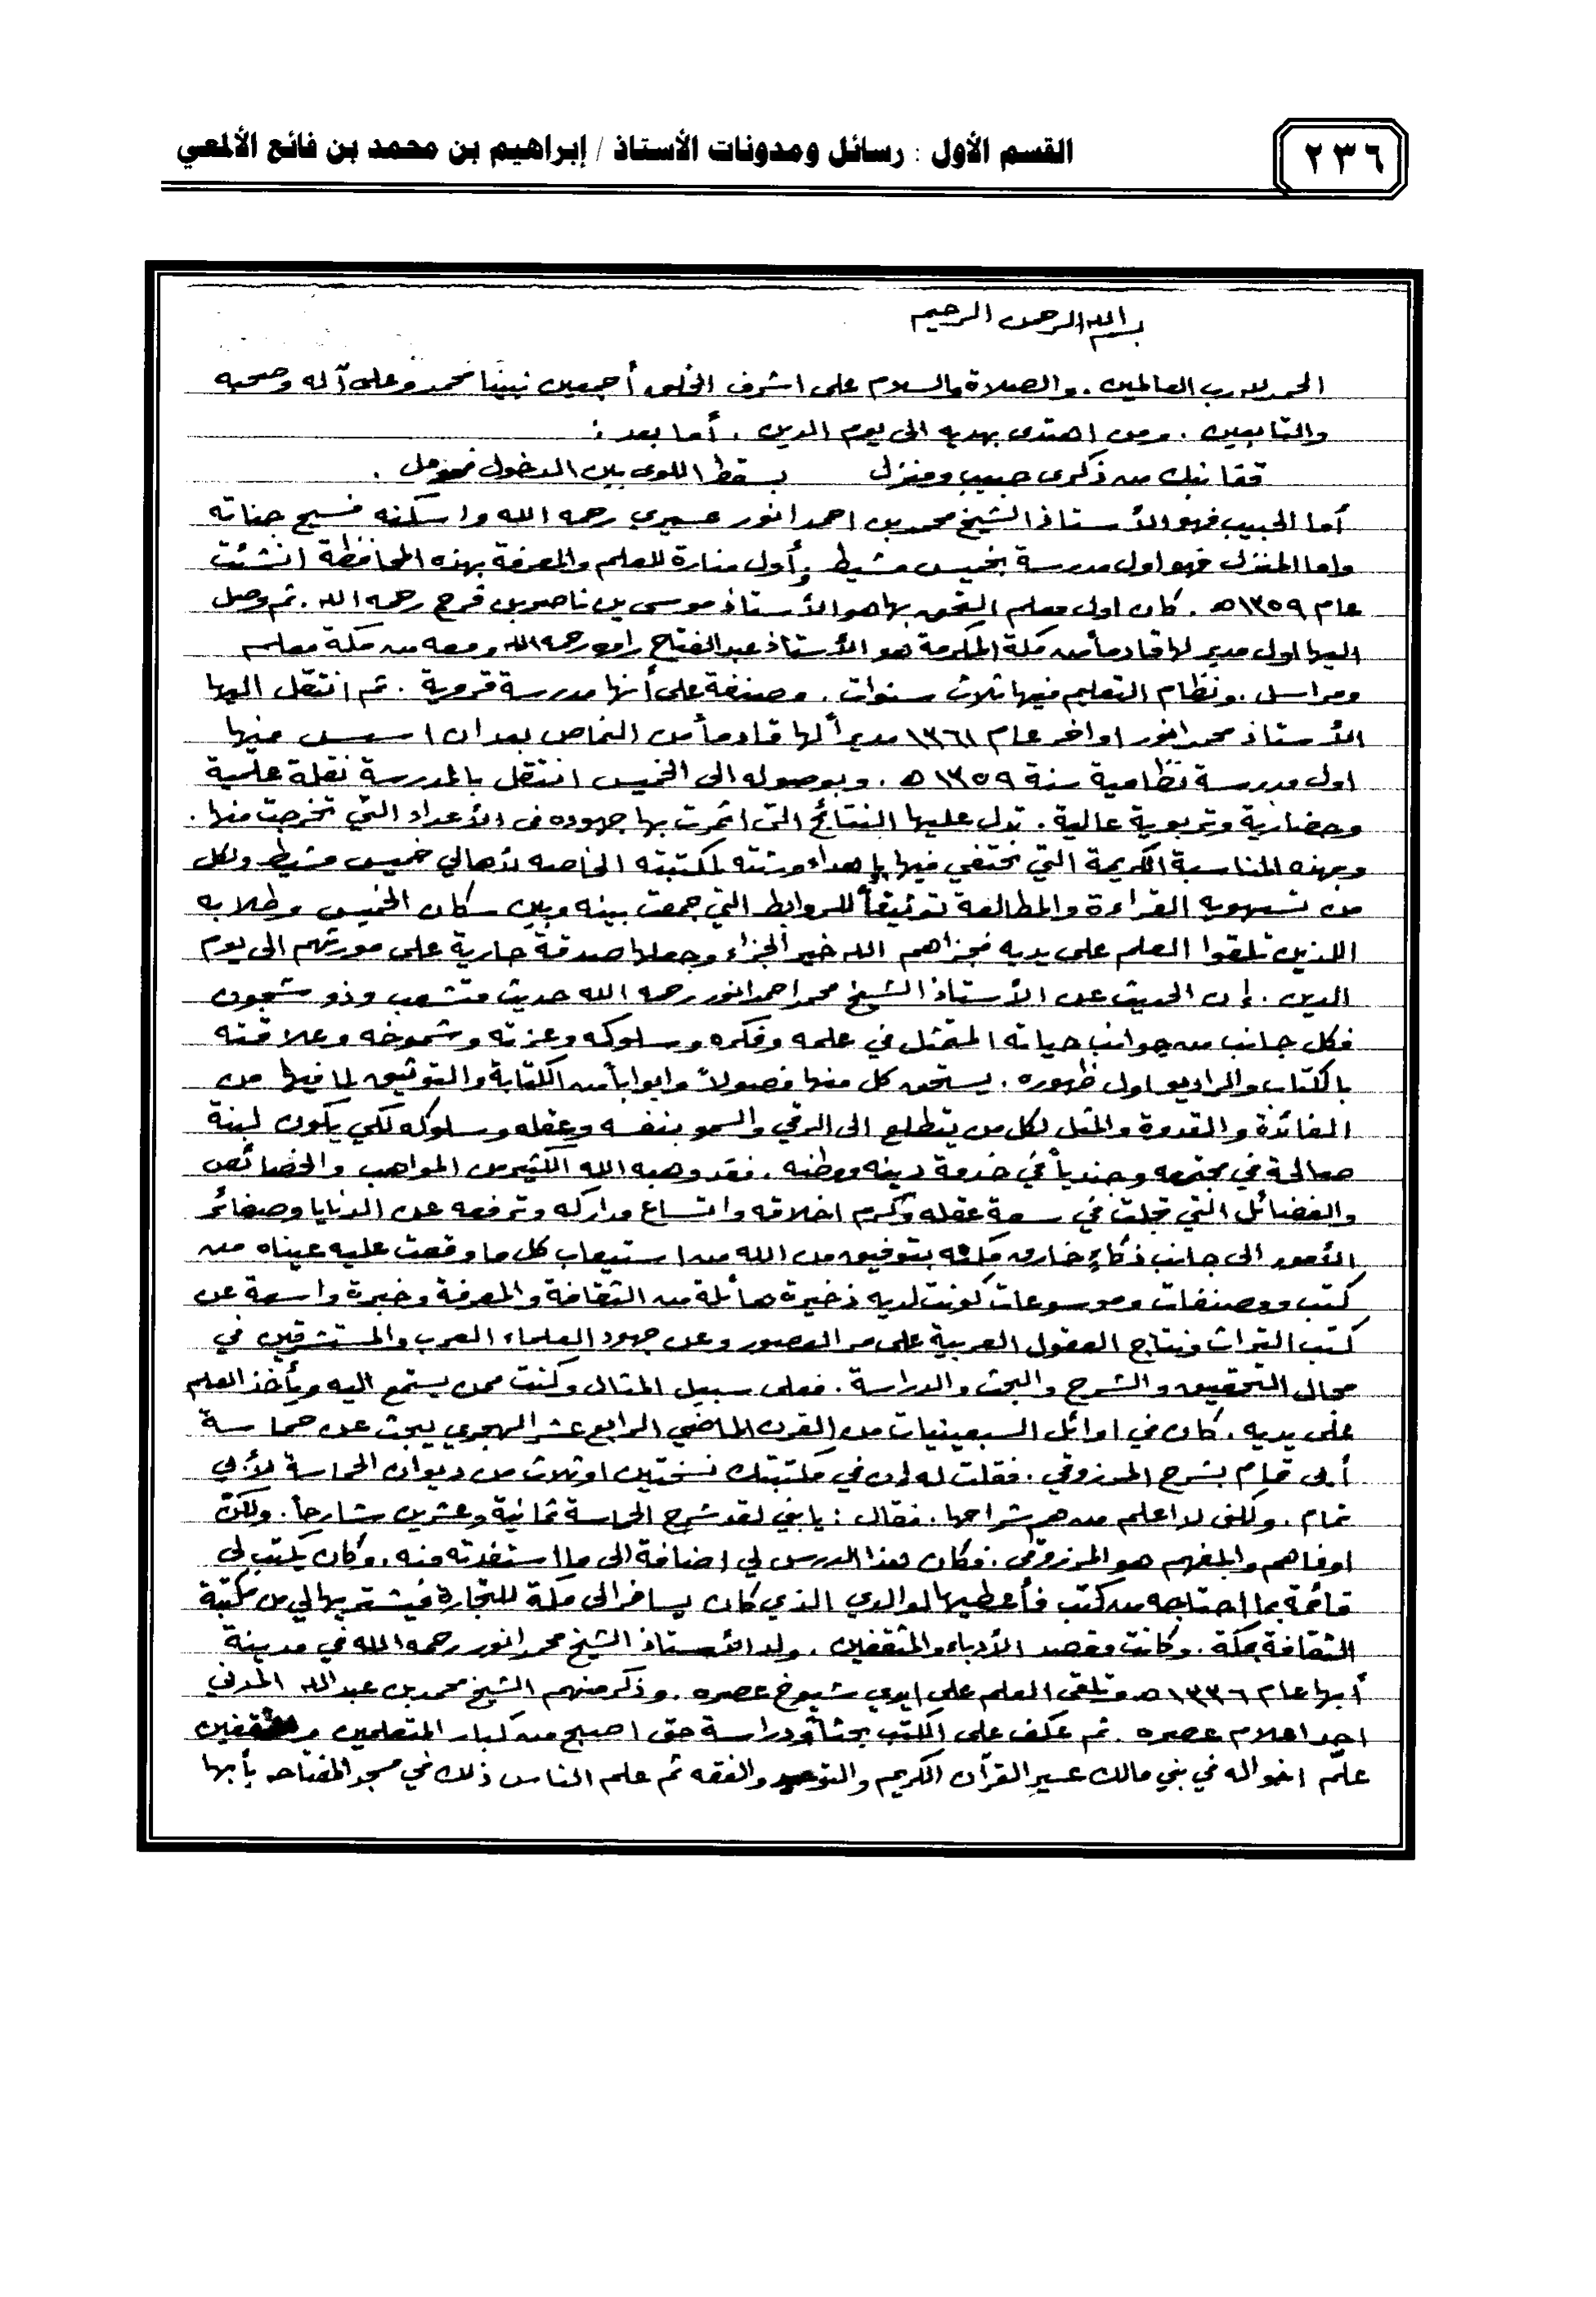 القسم الأول : رسائل ومدونات الأستاذ / إبراهيم بن محمد بن فائع الألمعي
٢٣٦
بسم الله الرحمن الرحيم
الحمد لله رب العالمين . والصلاة والسلام على اشرف الخلق أجمعين نبينا محمد وعلى آله وصحبه
والتابعين . ومن اهتدى بهديه الى يوم الدين . أما بعد :
قفا نبك من ذكرى حبيب ومنزل بسقط اللوى بين الدخول فحومل .
أما الحبيب فهو الأستاذ الشيخ محمد بن احمد انور عسيري رحمه الله واسكنه فسيح جناته
واما المنزل فهو اول مدرسة بخميس مشيط وأول منارة للعلم والمعرفة بهذه المحافظة انشئت
عام ١٣٥٩هـ . كان اول معلم التحق بها هو الأستاذ موسى بن ناصر بن فرج رحمه الله . ثم وصل
اليها اول مدير لها قادماً من مكة المكرمة هو الأستاذ عبد الفتاح راوه رحمه الله ومعه من مكة معلم
ومراسل . ونظام التعليم فيها ثلاث سنوات . ومصنفة على أنها مدرسة قروية . ثم انتقل اليها
الأستاذ محمد انور اواخر عام ١٣٦١ مديراً لها قادماً من النماص بعد ان اسس فيها
اول مدرسة نظامية سنة ١٣٥٩هـ . وبوصوله الى الخميس انتقل بالمدرسة نقلة علمية
وحضارية وتربوية عالية . تدل عليها النتائج التي اثمرت بها جهوده في الأعداد التي تخرجت منها .
وبهذه المناسبة الكريمة التي نحتفي فيها بإهداء ورثته لمكتبته الخاصه لأهالي خميس مشيط ولكل
من تستهويه القراءة والمطالعة توثيقاً للروابط التي جمعت بينه وبين سكان الخميس وطلابه
اللذين تلقوا العلم على يديه فجزاهم الله خير الجزاء وجعلها صدقة جارية على مورثهم الى يوم
الدين . إن الحديث عن الأستاذ الشيخ محمد احمد انور رحمه الله حديث متشعب وذو شجون
فكل جانب من جوانب حياته المتمثل في علمه وفكره وسلوكه وعزته وشموخه وعلاقته
بالكتاب والراديو اول ظهوره . يستحق كل منها فصولاً وابواباً من الكتابة والتوثيق لما فيها من
الفائدة والقدوة والمثل لكل من يتطلع الى الرقي والسمو بنفسه وعقله وسلوكه لكي يكون لبنة
صالحة في مجتمعه وجندياً في خدمة دينه ووطنه . فقد وهبه الله الكثير من المواهب والخصائص
والفضائل التي تجلت في سعة عقله وكرم اخلاقه واتساع مداركه وترفعه عن الدنايا وصغائر
الأمور الى جانب ذكاءٍ خارق مكنه بتوفيق من الله من استيعاب كل ما وقعت عليه عيناه من
كتب ومصنفات وموسوعات كونت لديه ذخيرة هائلة من الثقافة والمعرفة وخبرة واسعة عن
كتب التراث ونتاج العقول العربية على مر العصور وعن جهود العلماء العرب والمستشرقين في
مجال التحقيق والشرح والبحث والدراسة . فعلى سبيل المثال وكنت ممن يستمع اليه ويأخذ العلم
على يديه . كان في اوائل السبعينيات من القرن الماضي الرابع عشر الهجري يبحث عن حماسة
أبي تمام بشرح المرزوقي . فقلت له إن في مكتبتك نسختين او ثلاث من ديوان الحماسة لأبي
تمام . ولكني لا اعلم من هم شراحها . فقال : يا بني لقد شرح الحماسة ثمانية وعشرين شارحاً . ولكن
اوفاهم وابلغهم هو المرزوقي . فكان هذا الدرس لي اضافة الى ما استفدته منه . وكان يكتب لي
قائمة بما احتاجه من كتب فأعطيها لوالدي الذي كان يسافر الى مكة للتجارة فيشتريها لي من مكتبة
الثقافة بمكة . وكانت مقصد الأدباء والمثقفين . ولد الأستاذ الشيخ محمد انور رحمه الله في مدينة
أبها عام ١٣٣٦هـ وتلقى العلم على ايدي شيوخ عصره . وذكر منهم الشيخ محمد بن عبد الله المدني
احد اعلام عصره . ثم عكف على الكتب بحثاً ودراسة حتى اصبح من كبار المتعلمين والمثقفين
علّم اخواله في بني مالك عسير القرآن الكريم والتوحيد والفقه ثم علم الناس ذلك في مسجد المفتاحه بأبها